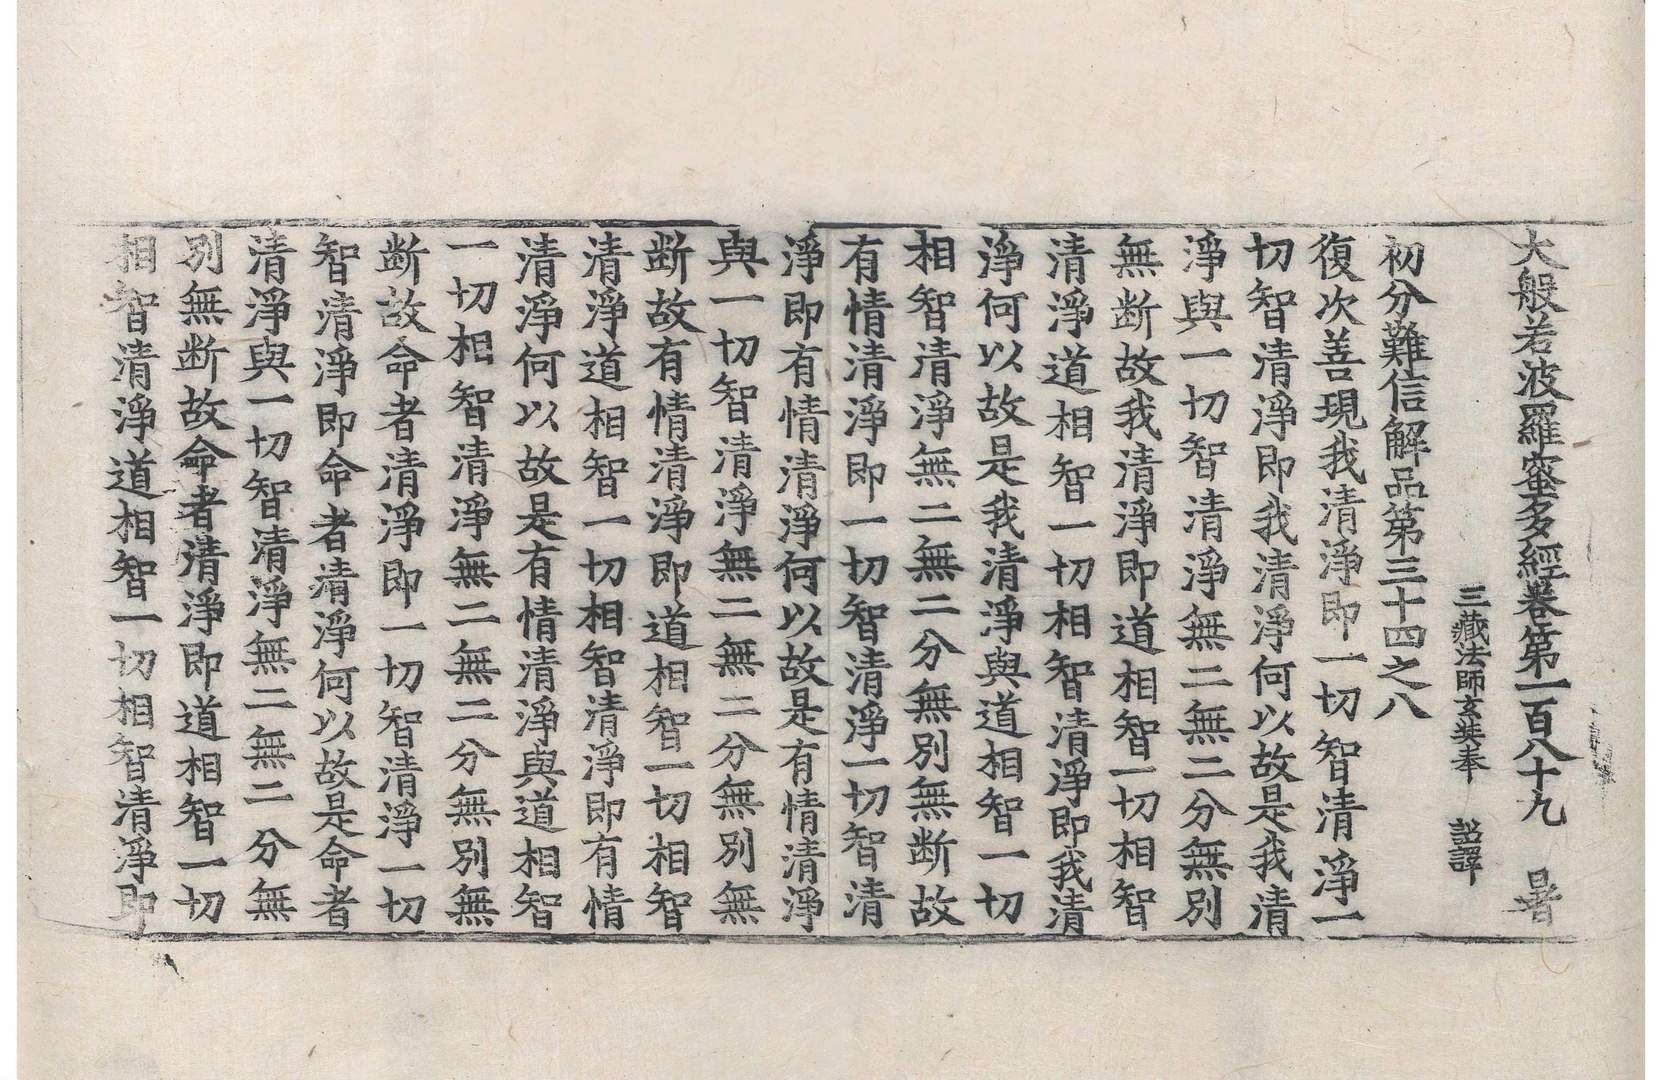 大般若波羅蜜多經卷第一百八十九 暑
三藏法師玄奘奉 詔譯
初分難信解品第三十四之八
復次善現我清淨即一切智清淨一
切智清淨即我清淨何以故是我清
淨與一切智清淨無二無二分無別
無断故我清淨即道相智一切相智
清淨道相智一切相智清淨即我清
淨何以故是我清淨與道相智一切
相智清淨無二無二分無別無断故
有情清淨即一切智清淨一切智清
淨即有情清淨何以故是有情清淨
與一切智清淨無二無二分無別無
断故有情清淨即道相智一切相智
清淨道相智一切相智清淨即有情
清淨何以故是有情清淨與道相智
一切相智清淨無二無二分無別無
断故命者清淨即一切智清淨一切
智清淨即命者清淨何以故是命者
清淨與一切智清淨無二無二分無
別無断故命者清淨即道相智一切
相智清淨道相智一切相智清淨即